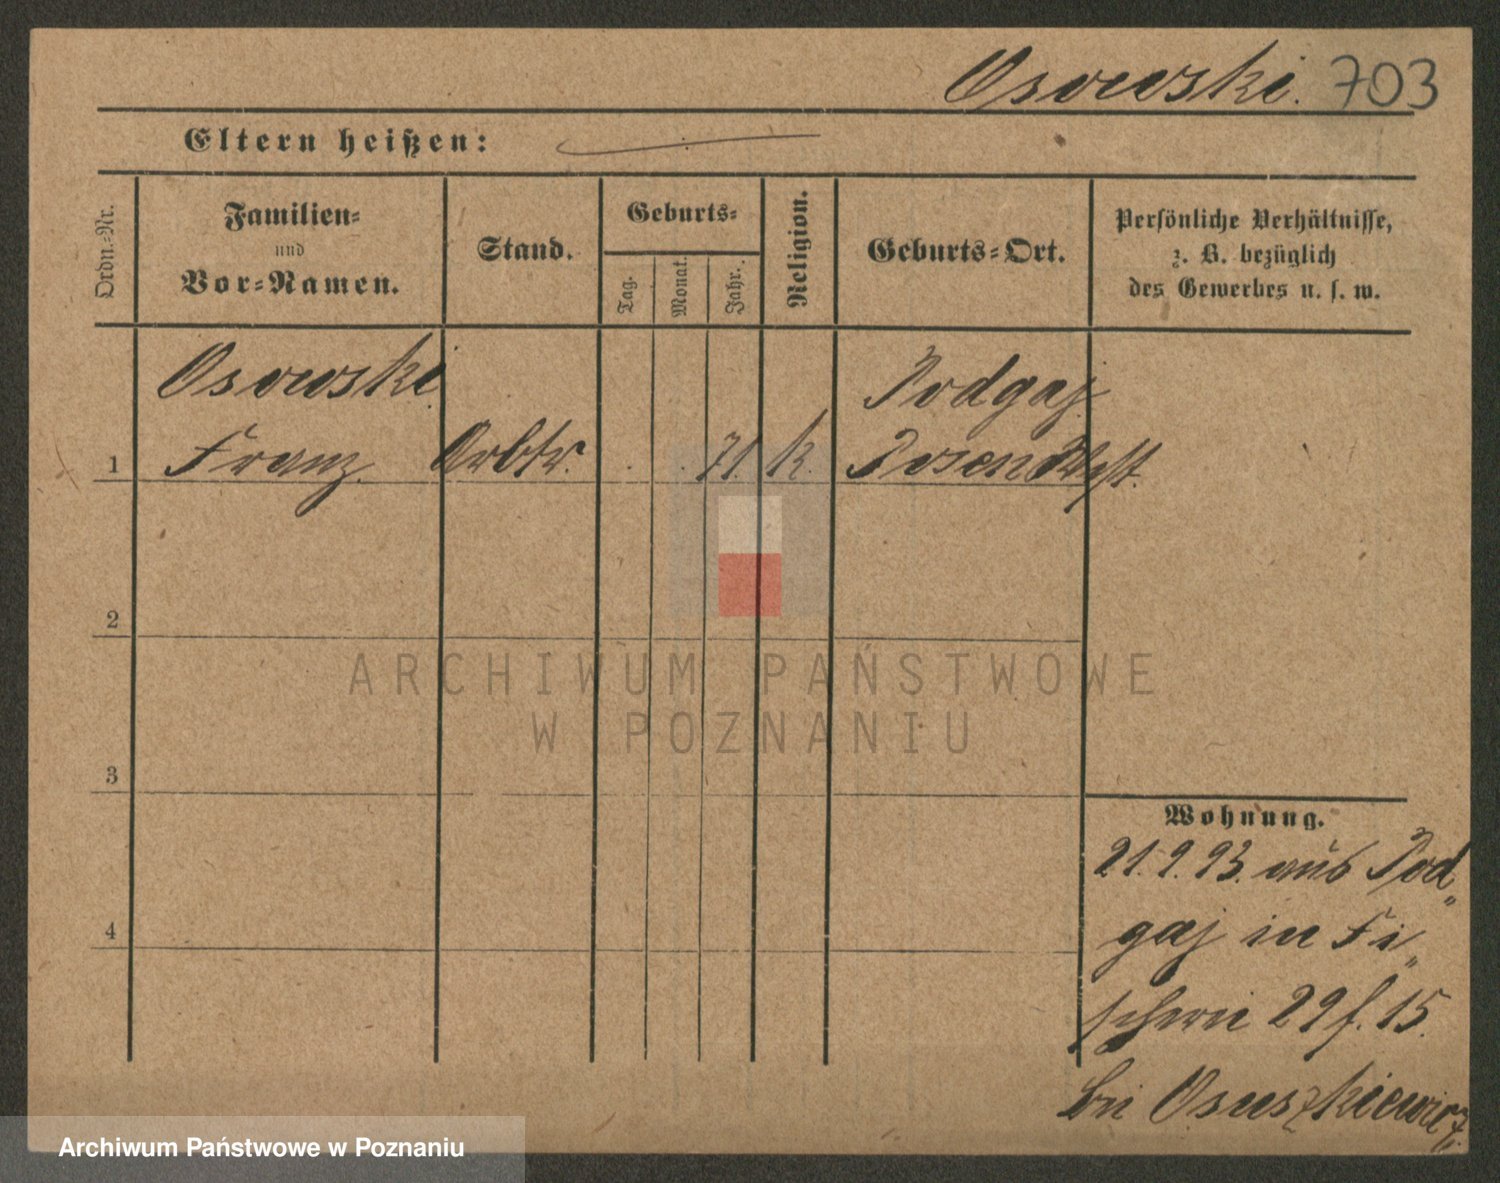 Osowski. 703
Eltern heißen:
Ordn.-Nr.
Familien-
und
Vor-Namen.
Stand.
Geburts-
Tag.
Monat.
Jahr.
Religion.
Geburts-Ort.
Persönliche Verhältnisse,
z. B. bezüglich
des Gewerbes u. s. w.
Osowski
Podgaj
1 Franz. Arbtr. 71. k. Posen West.
2
ARCHIWUM PAŃSTWOWE
W POZNANIU
3
Wohnung.
21.9.93. aus Pod„
4
gaj in Fi„
scherei 29 f. 15.
bei Osuszkiewicz.
Archiwum Państwowe w Poznaniu